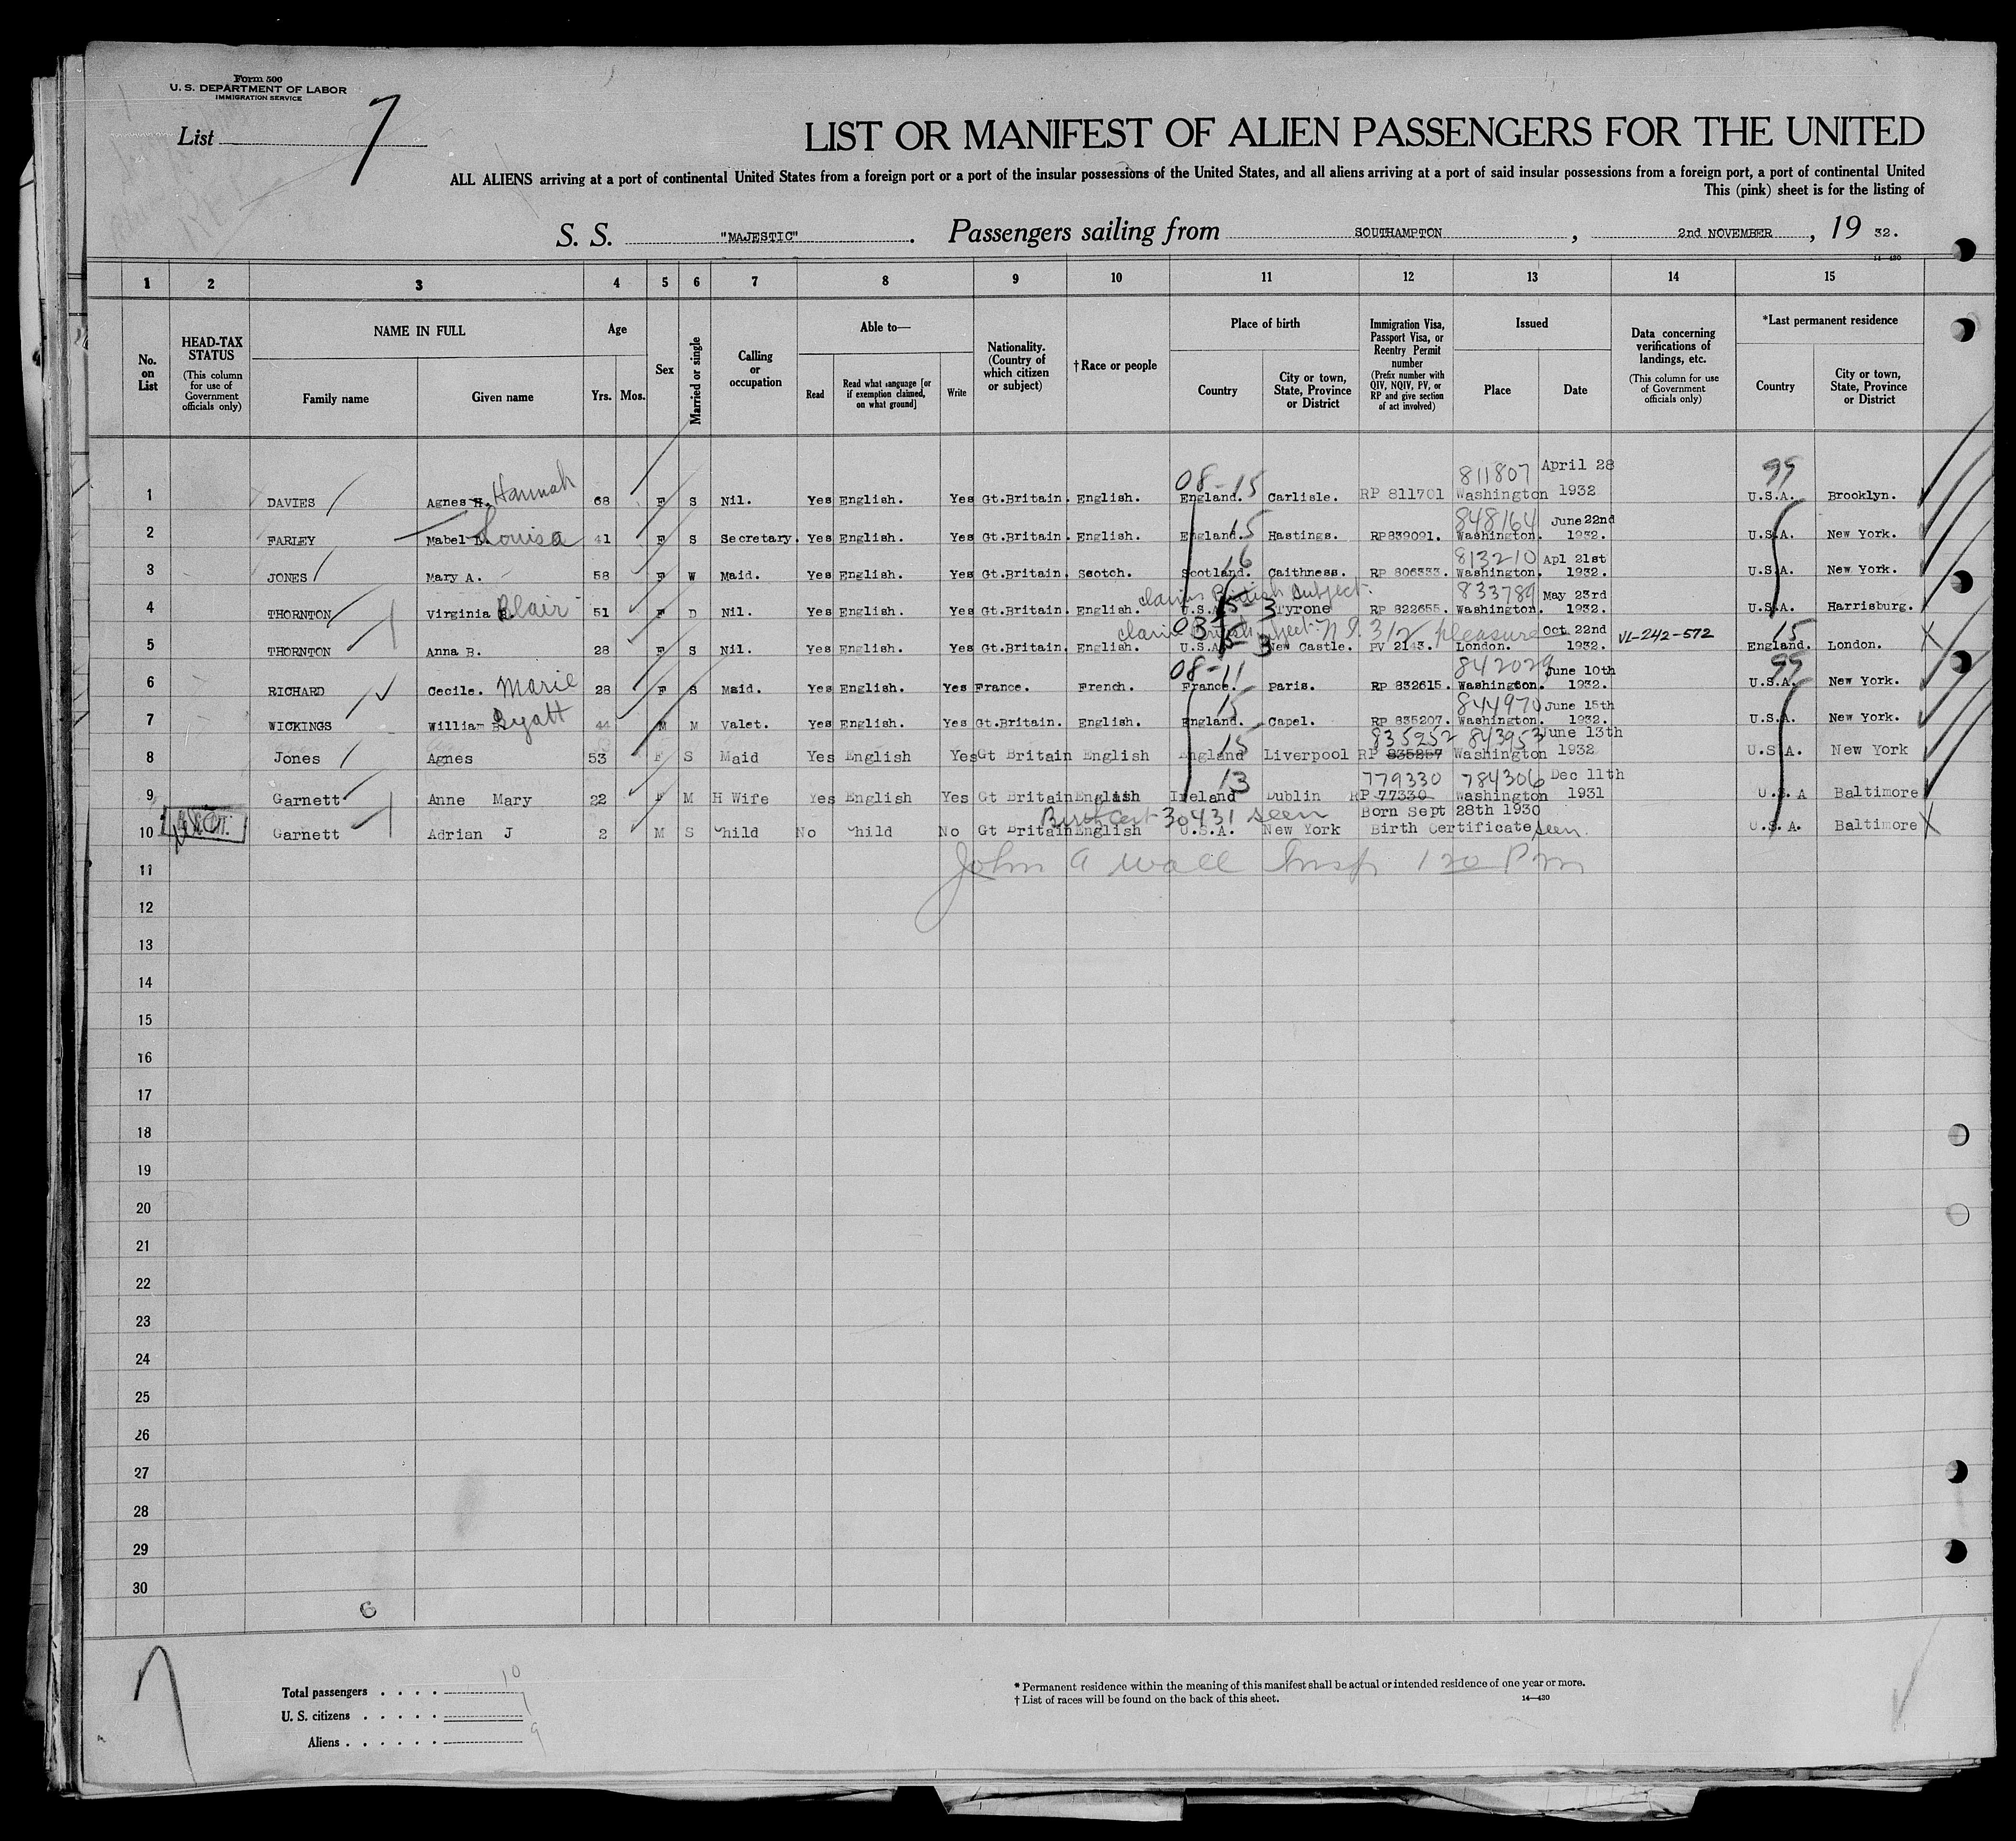 Form 500
U. S. DEPARTMENT OF LABOR
IMMIGRATION SERVICE
List 7
LIST OR MANIFEST OF ALIEN PASSENGERS FOR THE UNITED
ALL ALIENS arriving at a port of continental United States from a foreign port or a port of the insular possessions of the United States, and all aliens arriving at a port of said insular possessions from a foreign port, a port of continental United
This (pink) sheet is for the listing of
S. S. "MAJESTIC". Passengers sailing from SOUTHAMPTON, 2nd NOVEMBER, 19 32.
14-430
1 2 3 4 5 6 7 8 9 10 11 12 13 14 15
No. on List
HEAD-TAX STATUS (This column for use of Government officials only)
NAME IN FULL
Family name Given name
Age
Yrs. Mos.
Sex
Married or single
Calling or occupation
Able to—
Read Read what language [or if exemption claimed, on what ground] Write
Nationality. (Country of which citizen or subject)
† Race or people
Place of birth
Country City or town, State, Province or District
Immigration Visa, Passport Visa, or Reentry Permit number (Prefix number with QIV, NQIV, PV, or RP and give section of act involved)
Issued
Place Date
Data concerning verifications of landings, etc. (This column for use of Government officials only)
*Last permanent residence
Country City or town, State, Province or District
08-15 811807 April 28 99
1 DAVIES Agnes H. Hannah 68 F S Nil. Yes English. Yes Gt.Britain. English. England. Carlisle. RP 811701 Washington 1932 U.S.A. Brooklyn.
15 848164 June 22nd
2 FARLEY Mabel L. Louisa 41 F S Secretary. Yes English. Yes Gt.Britain. English. England. Hastings. RP839091. Washington. 1932. U.S.A. New York.
16 813210 Apl 21st
3 JONES Mary A. 58 F W Maid. Yes English. Yes Gt.Britain. Scotch. Scotland. Caithness. RP 806333. Washington. 1932. U.S.A. New York.
claims British Subject. 833789 May 23rd
4 THORNTON Virginia Blair 51 F D Nil. Yes English. Yes Gt.Britain. English. U.S.A. 3 Tyrone RP 822655. Washington. 1932. U.S.A. Harrisburg.
claims British Subject. 3/2 pleasure Oct. 22nd VL-242-572 15
5 THORNTON Anna B. 28 F S Nil. Yes English. Yes Gt.Britain. English. U.S.A. 3 New Castle. PV 2143. London. 1932. England. London.
08-11 842029 June 10th 99
6 RICHARD Cecile. Marie 28 F S Maid. Yes English. Yes France. French. France. Paris. RP 832615. Washington. 1932. U.S.A. New York.
15 844970 June 15th
7 WICKINGS William 44 M M Valet. Yes English. Yes Gt.Britain. English. England. Capel. RP 835207. Washington. 1932. U.S.A. New York.
15 835252 843953 June 13th
8 Jones Agnes 53 F S Maid Yes English Yes Gt Britain English England Liverpool RP 835257 Washington 1932 U.S.A. New York
13 779330 784306 Dec 11th
9 Garnett Anne Mary 22 F M H Wife Yes English Yes Gt Britain English Ireland Dublin RP 77330 Washington 1931 U.S.A Baltimore
Birth Cert 30431 seen Born Sept 28th 1930
10 Garnett Adrian J 2 M S Child No Child No Gt Britain English U.S.A. New York Birth Certificate seen. U.S.A. Baltimore
11 John A Wall Insp 1 20 Pm
12
13
14
15
16
17
18
19
20
21
22
23
24
25
26
27
28
29
30
6
7
Total passengers . . . . 10
U. S. citizens . . . . . 1
Aliens . . . . . . 9
* Permanent residence within the meaning of this manifest shall be actual or intended residence of one year or more.
† List of races will be found on the back of this sheet. 14—430